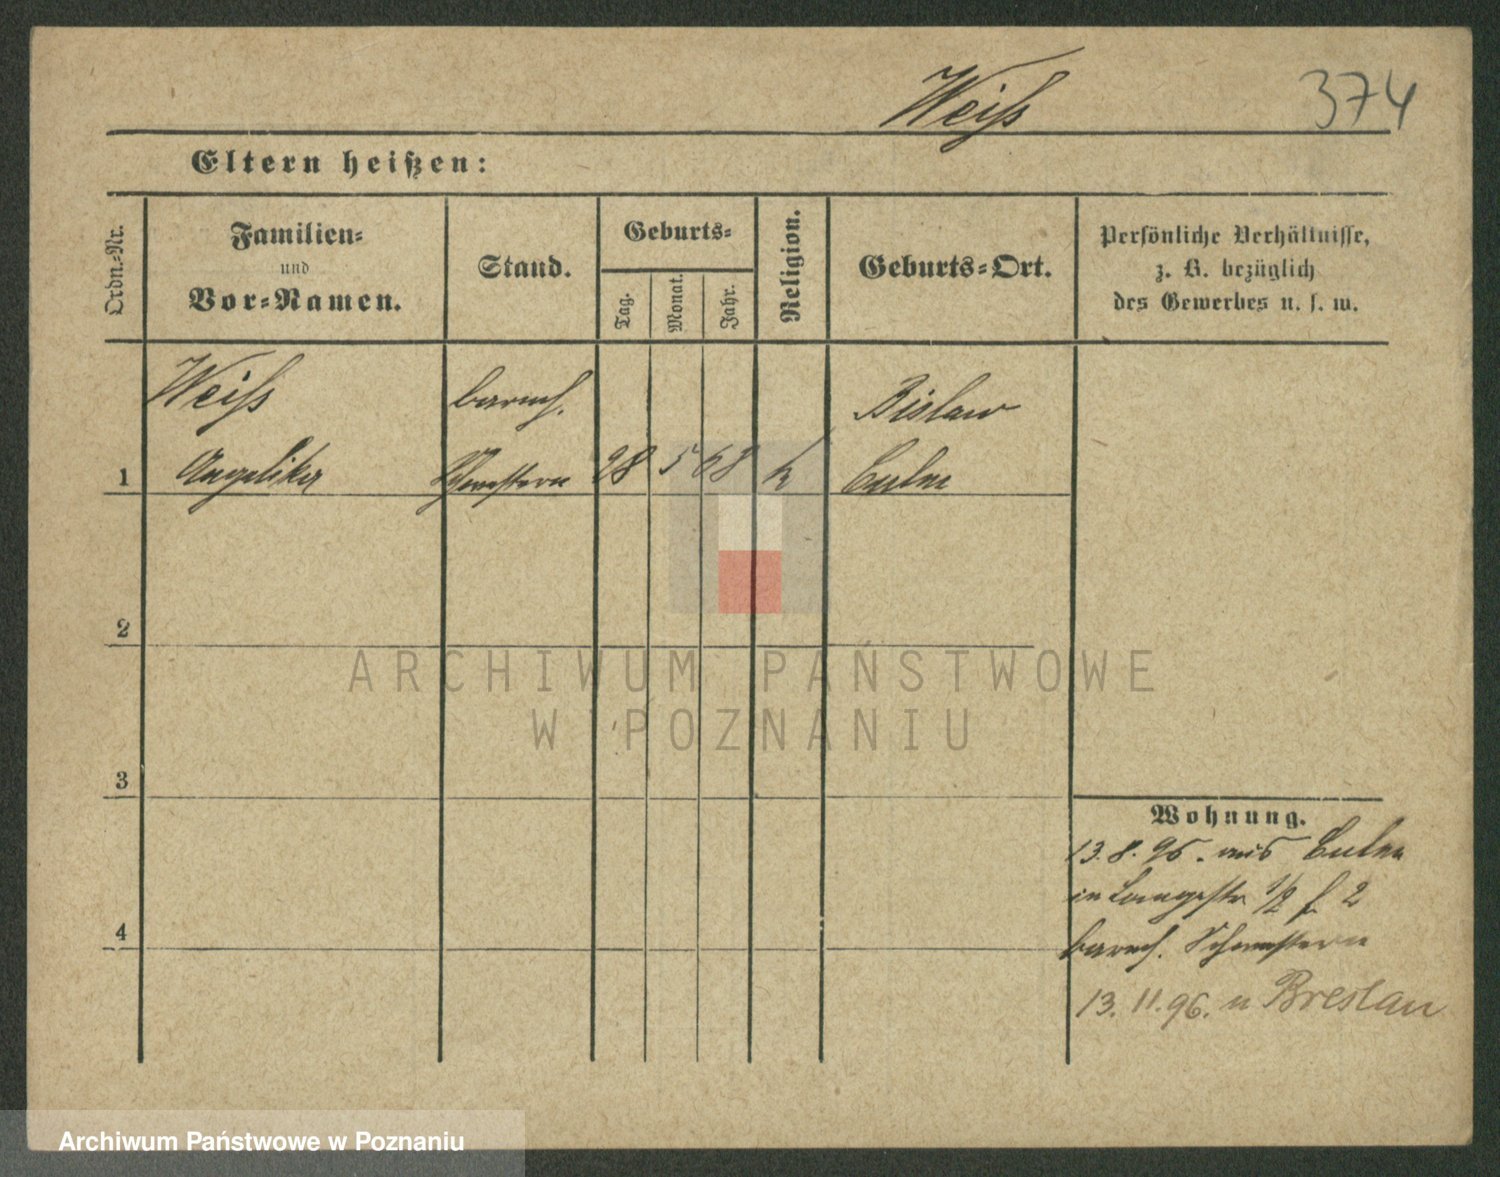 Weiß
374
Eltern heißen:
Ordn.-Nr.
Familien-
und
Vor-Namen.
Stand.
Geburts-
Tag.
Monat.
Jahr.
Religion.
Geburts-Ort.
Persönliche Verhältnisse,
z. B. bezüglich
des Gewerbes u. s. w.
Weiß
barmh.
Bislaw
1
Angelika
Schwestern
28
5
68
k
Culm
2
3
4
Wohnung.
13.8.96. aus Culm
in Langestr 1/2 f 2
barmh. Schwestern
13.11.96. n Breslau
ARCHIWUM PAŃSTWOWE
W POZNANIU
Archiwum Państwowe w Poznaniu